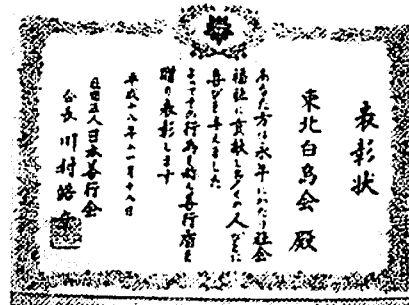 表彰状
東北白鳥会 殿
あなた方は永年にわたり社会
福祉に貢献し多くの人びとに
喜びを与えました
よってその行為を称え善行賞を
贈り表彰します
平成十八年十一月十八日
社団法人日本善行会
会長 川村皓章